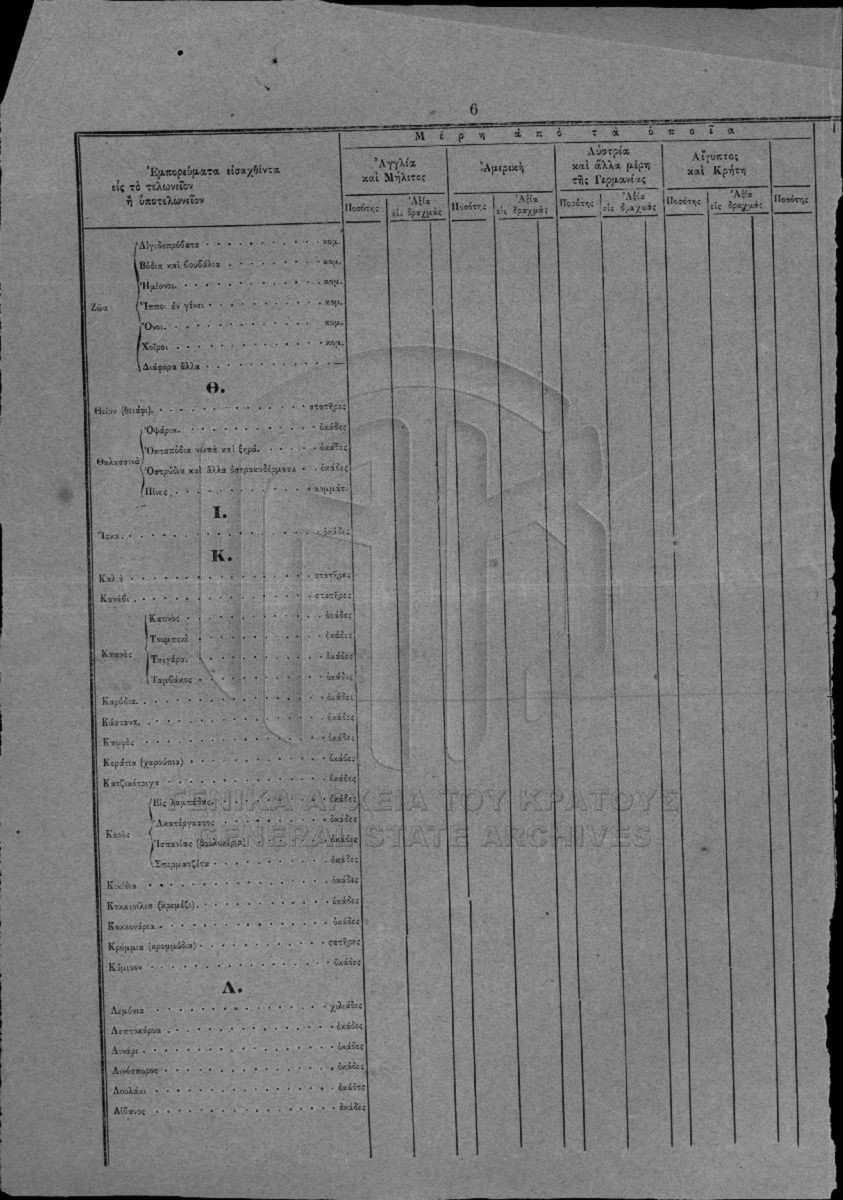 6
Μέρη ἀπό τὰ ὁποῖα
Ἐμπορεύματα εἰσαχθέντα
εἰς τὸ τελωνεῖον
ἢ ὑποτελωνεῖον
Ἀγγλία
καὶ Μήλιτος
Ἀμερικὴ
Αὐστρία
καὶ ἄλλα μέρη
τῆς Γερμανίας
Αἴγυπτος
καὶ Κρήτη
Ποσότης Ἀξία εἰς δραχμὰς Ποσότης Ἀξία εἰς δραχμὰς Ποσότης Ἀξία εἰς δραχμὰς Ποσότης Ἀξία εἰς δραχμὰς Ποσότης
Ζῶα
Αἰγιδοπρόβατα κομ.
Βόδια καὶ βουβάλια κομ.
Ἡμίονοι κομ.
Ἵπποι ἐν γένει κομ.
Ὄνοι κομ.
Χοῖροι κομ.
Διάφορα ἄλλα —
Θ.
Θεῖον (θειάφι) στατῆρες
Θαλασσινὰ
Ὀψάρια ὀκάδες
Ὀκταπόδια νωπὰ καὶ ξηρὰ ὀκάδες
Ὀστρύδια καὶ ἄλλα ὀστρακοδέρματα ὀκάδες
Πίνες κομμάτ.
Ι.
Ἴσκα ὀκάδες
Κ.
Καλιὰ στατῆρες
Κανάβι στατῆρες
Καπνὸς
Καπνὸς ὀκάδες
Τουμπεκὶ ὀκάδες
Τσιγάρα ὀκάδες
Ταμβάκος ὀκάδες
Καρύδια ὀκάδες
Κάστανα ὀκάδες
Καφφὲς ὀκάδες
Κεράτια (χαρούπια) ὀκάδες
Κατζικότριχα ὀκάδες
Κερὸς
Εἰς λαμπάδας ὀκάδες
Ἀκατέργαστος ὀκάδες
Ἱσπανίας (βουλοκέρια) ὀκάδες
Σπερματζέτα ὀκάδες
Κικίδια ὀκάδες
Κοκκινίλια (κρεμέζι) ὀκάδες
Κοκκονάρια ὀκάδες
Κρόμμια (κρομμύδια) στατῆρες
Κύμινον ὀκάδες
Λ.
Λεμόνια χιλιάδες
Λεπτοκάρυα ὀκάδες
Λινάρι ὀκάδες
Λινόσπορος ὀκάδες
Λουλάκι ὀκάδες
Λίβανος ὀκάδες
ΓΕΝΙΚΑ ΑΡΧΕΙΑ ΤΟΥ ΚΡΑΤΟΥΣ
GENERAL STATE ARCHIVES